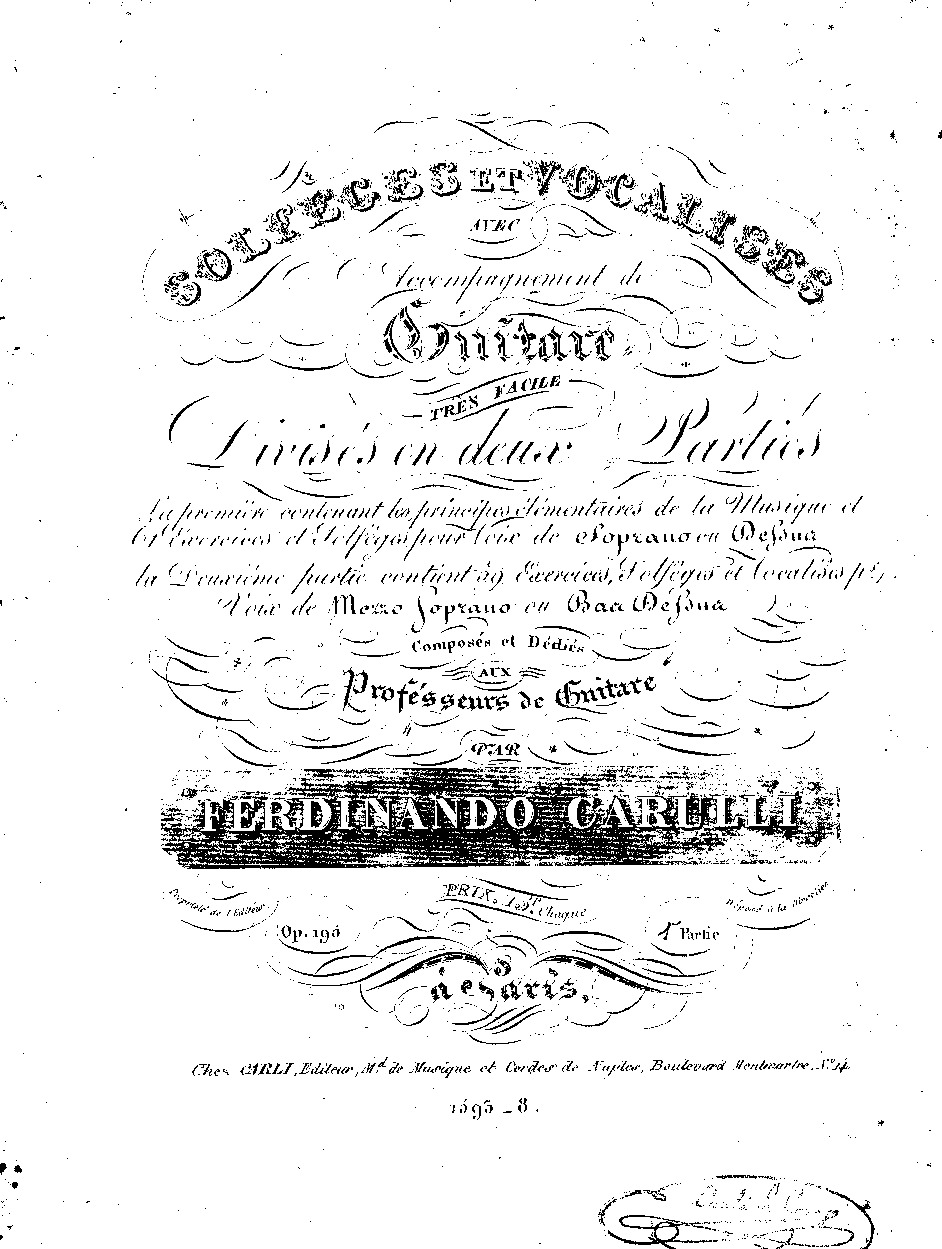 SOLFÉGES ET VOCALISES
AVEC
Accompagnement de
Guitare
TRÈS FACILE
Divisés en deux Partiés
La première contenant les principes élémentaires de la Musique et
61 Exercices et Solféges pour Voix de Soprano ou Deſsus
la Deuxiéme partie contient 59 Exercices, Solféges et Vocalisés pr.
Voix de Mezzo Soprano ou Bas Deſsus
Composés et Dédiés
AUX
Profésseurs de Guitare
PAR
FERDINANDO CARULLI
Propriété de l'Editeur
PRIX. 12f. Chaque
Déposé à la Direction
Op. 195
1e Partie
à Paris,
Chez CARLI, Editeur, Md. de Musique et Cordes de Naples, Boulevard Montmartre, No. 14
1595 _ 8.